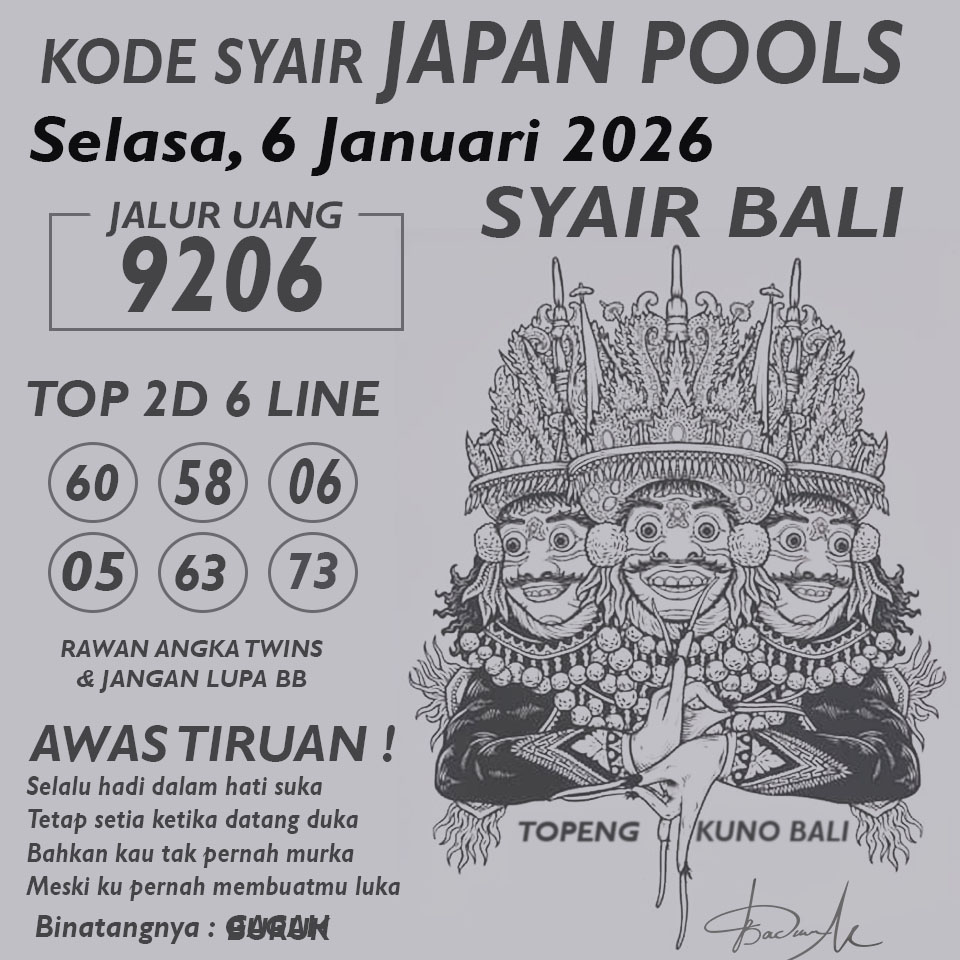 KODE SYAIR JAPAN POOLS
Selasa, 6 Januari 2026
SYAIR BALI
JALUR UANG
9206
TOP 2D 6 LINE
60 58 06
05 63 73
RAWAN ANGKA TWINS
& JANGAN LUPA BB
AWAS TIRUAN !
Selalu hadi dalam hati suka
Tetap setia ketika datang duka
Bahkan kau tak pernah murka
Meski ku pernah membuatmu luka
Binatangnya :
TOPENG KUNO BALI